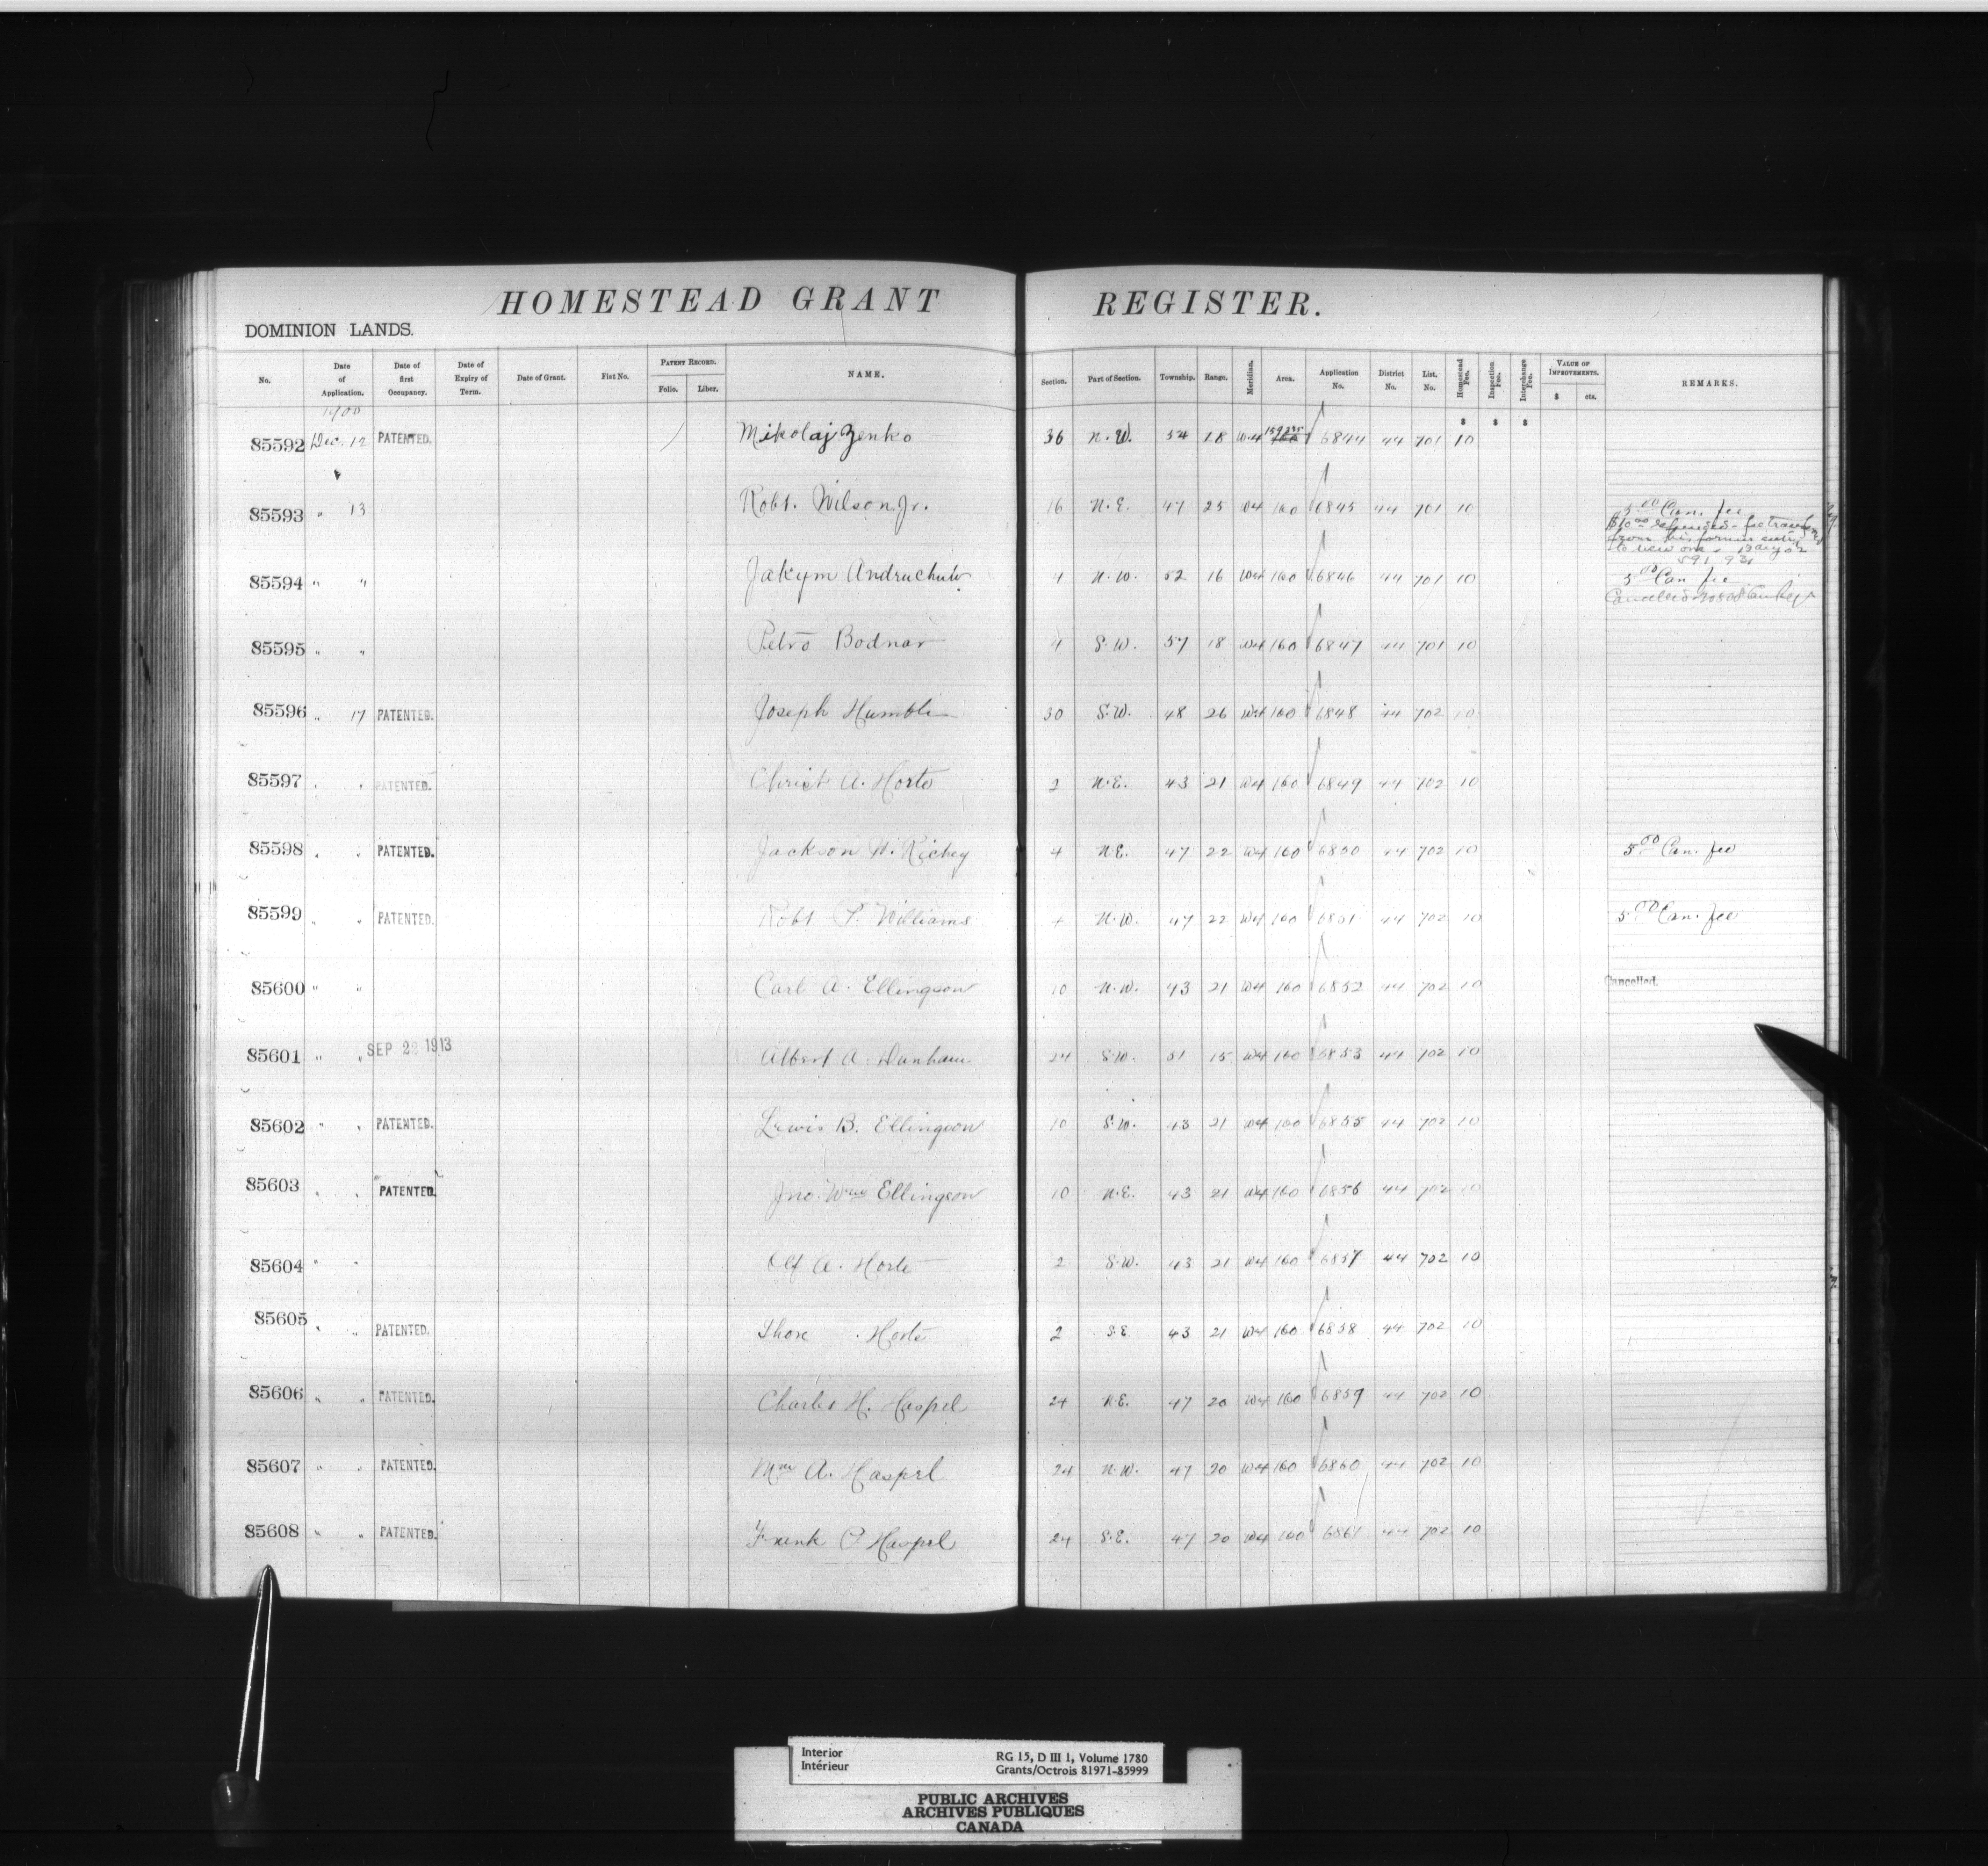 HOMESTEAD GRANT REGISTER.
DOMINION LANDS.
No. Date of Application. Date of first Occupancy. Date of Expiry of Term. Date of Grant. Fiat No. PATENT RECORD. Folio. Liber. NAME. Section. Part of Section. Township. Range. Meridian. Area. Application No. District No. List. No. Homestead Fee. Inspection Fee. Interchange Fee. VALUE OF IMPROVEMENTS. $ cts. REMARKS.
1900
$ $ $
85592 Dec. 12 PATENTED. Mikolaj Zenko 36 N.W. 54 18 W4 160 6844 44 701 10
85593 " 13 Robt. Wilson Jr. 16 N.E. 47 25 W4 160 6845 44 701 10 5 00 Can. fee
85594 " " Jakym Andruchuk 4 N.W. 52 16 W4 160 6846 44 701 10 5 00 Can fee
85595 " " Petro Bodnar 4 S.W. 57 18 W4 160 6847 44 701 10
85596 " 17 PATENTED. Joseph Humble 30 S.W. 48 26 W4 160 6848 44 702 10
85597 " " PATENTED. Christ A. Horte 2 N.E. 43 21 W4 160 6849 44 702 10
85598 " " PATENTED. Jackson W. Richey 4 N.E. 47 22 W4 160 6850 44 702 10 5 00 Can. fee
85599 " " PATENTED. Robt P. Williams 4 N.W. 47 22 W4 160 6851 44 702 10 5 00 Can. fee
85600 " " Carl A. Ellingson 10 N.W. 43 21 W4 160 6852 44 702 10 Cancelled.
85601 " " SEP 22 1913 Albert A. Dunham 24 S.W. 51 15 W4 160 6853 44 702 10
85602 " " PATENTED. Lewis B. Ellingson 10 S.W. 43 21 W4 160 6855 44 702 10
85603 " " PATENTED. Jno. Wm Ellingson 10 N.E. 43 21 W4 160 6856 44 702 10
85604 " " Olf A. Horte 2 S.W. 43 21 W4 160 6857 44 702 10
85605 " " PATENTED. Thore Horte 2 S.E. 43 21 W4 160 6858 44 702 10
85606 " " PATENTED. Charles H. Haspel 24 N.E. 47 20 W4 160 6859 44 702 10
85607 " " PATENTED. Wm A. Haspel 24 N.W. 47 20 W4 160 6860 44 702 10
85608 " " PATENTED. Frank P Haspel 24 S.E. 47 20 W4 160 6861 44 702 10
Interior RG 15, D III 1, Volume 1780
Intérieur Grants/Octrois 81971-85999
PUBLIC ARCHIVES
ARCHIVES PUBLIQUES
CANADA